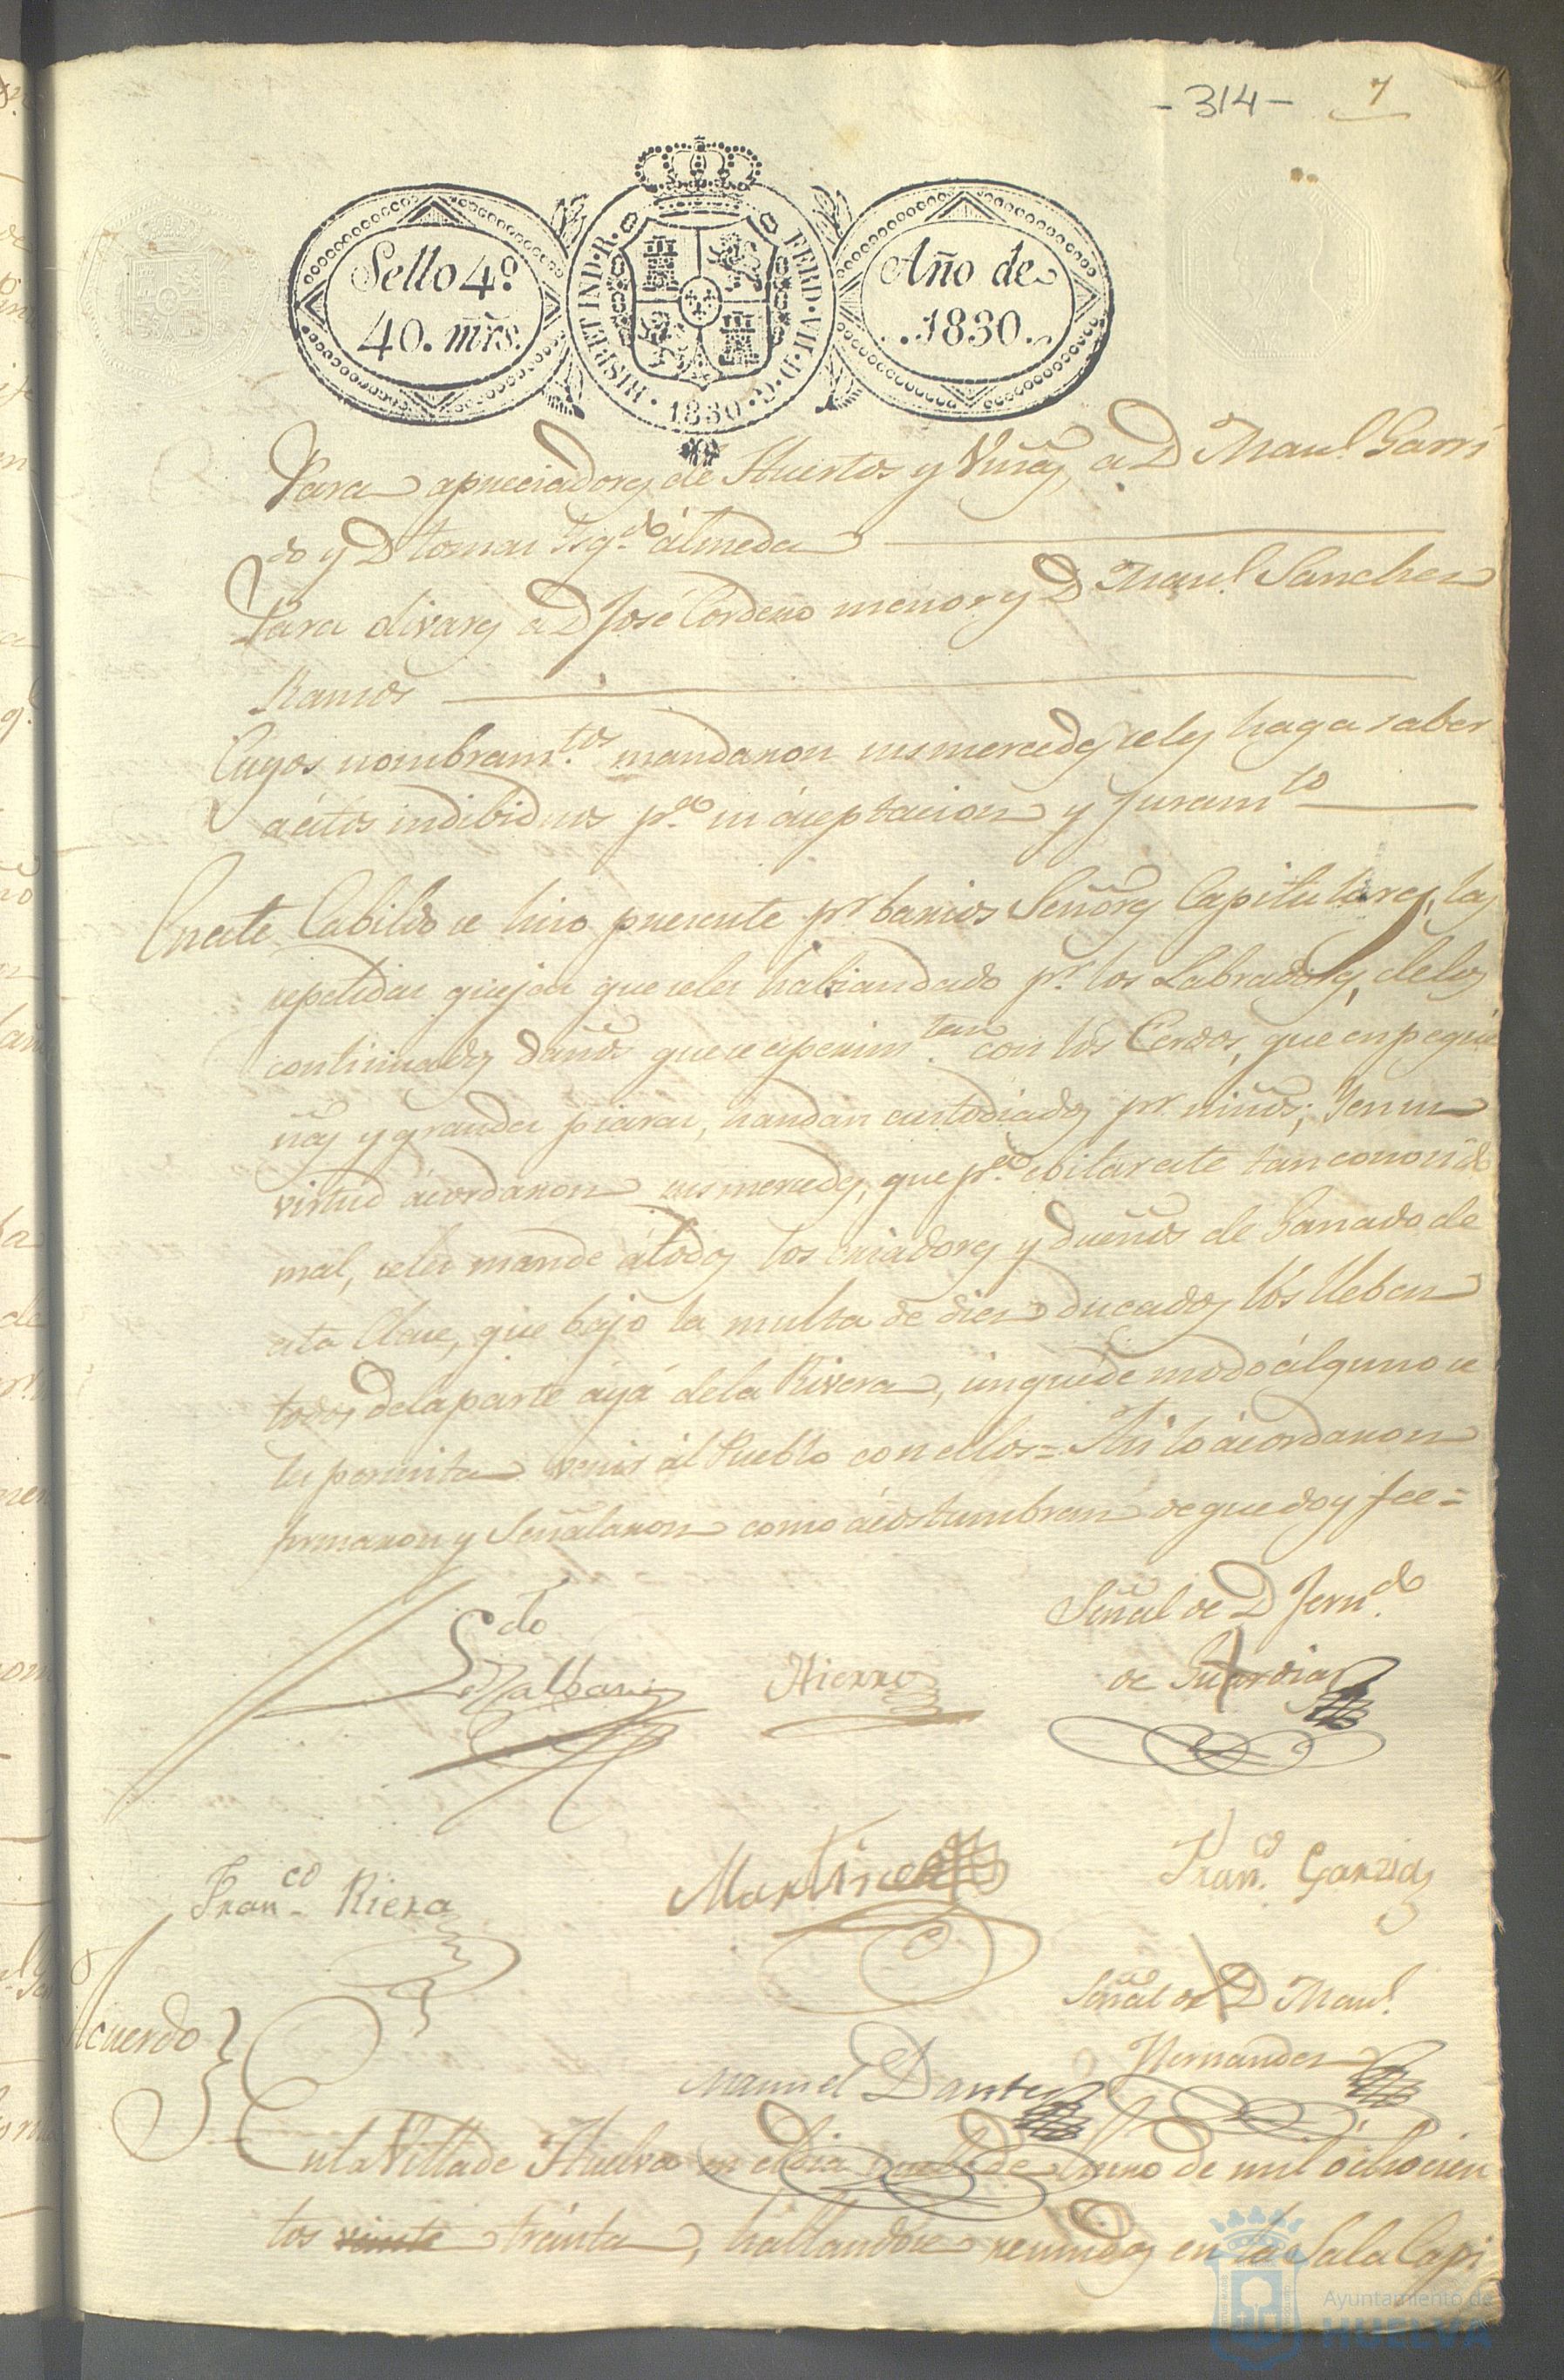 - 314 - 7
Sello 4º
40. mrs.
HISP. ET IND. R. FERD. VII. D. G. 1830
Año de
1830.
Para apreciadores de Huertos y Viñas, a D Manl. Garri
do y D tomas álmeda
Para olivares a D José Cordero menor y D Manl. Sanchez
Ramos
Cuyos nombramtos. mandaron sus mercedes seles haga saber
aéstos indibiduos pa. su áceptacion y Juramto
Eneste Cabildo se hizo presente pr barios Señores Capitulares, las
repetidas quejas que seles habiandado pr. los Labradores, delos
continuados daños que se esperimtan. con los Cerdos, que enpeque
ñas y grandes piaras, handan custodiados pr niños; Yensu
virtud ácordaron sus mercedes, que pa. ebitar este tan conosido
mal, seles mande átodos los criadores y dueños de Ganado de
esta Clase, que bajo la multa de diez ducados los lleben
todos delaparte áya dela Rivera, sinquede modo álguno se
les permita venir ál Pueblo con ellos = Asi lo ácordaron
firmaron y Señalaron como ácostumbran de que doy fee =
Señal de D Ferndo.
Ldo
Malbar Hierro de Guardia
Franco. Riera Martinez Franco. Garzia
Señal de D Manl.
Hernandez
Acuerdo
Manuel Dante
Enla Villa de Huelva en eldia de Enero de mil óchocien
tos veinte treinta, hallandose reunidos en la Sala Capi
Ayuntamiento de
HUELVA